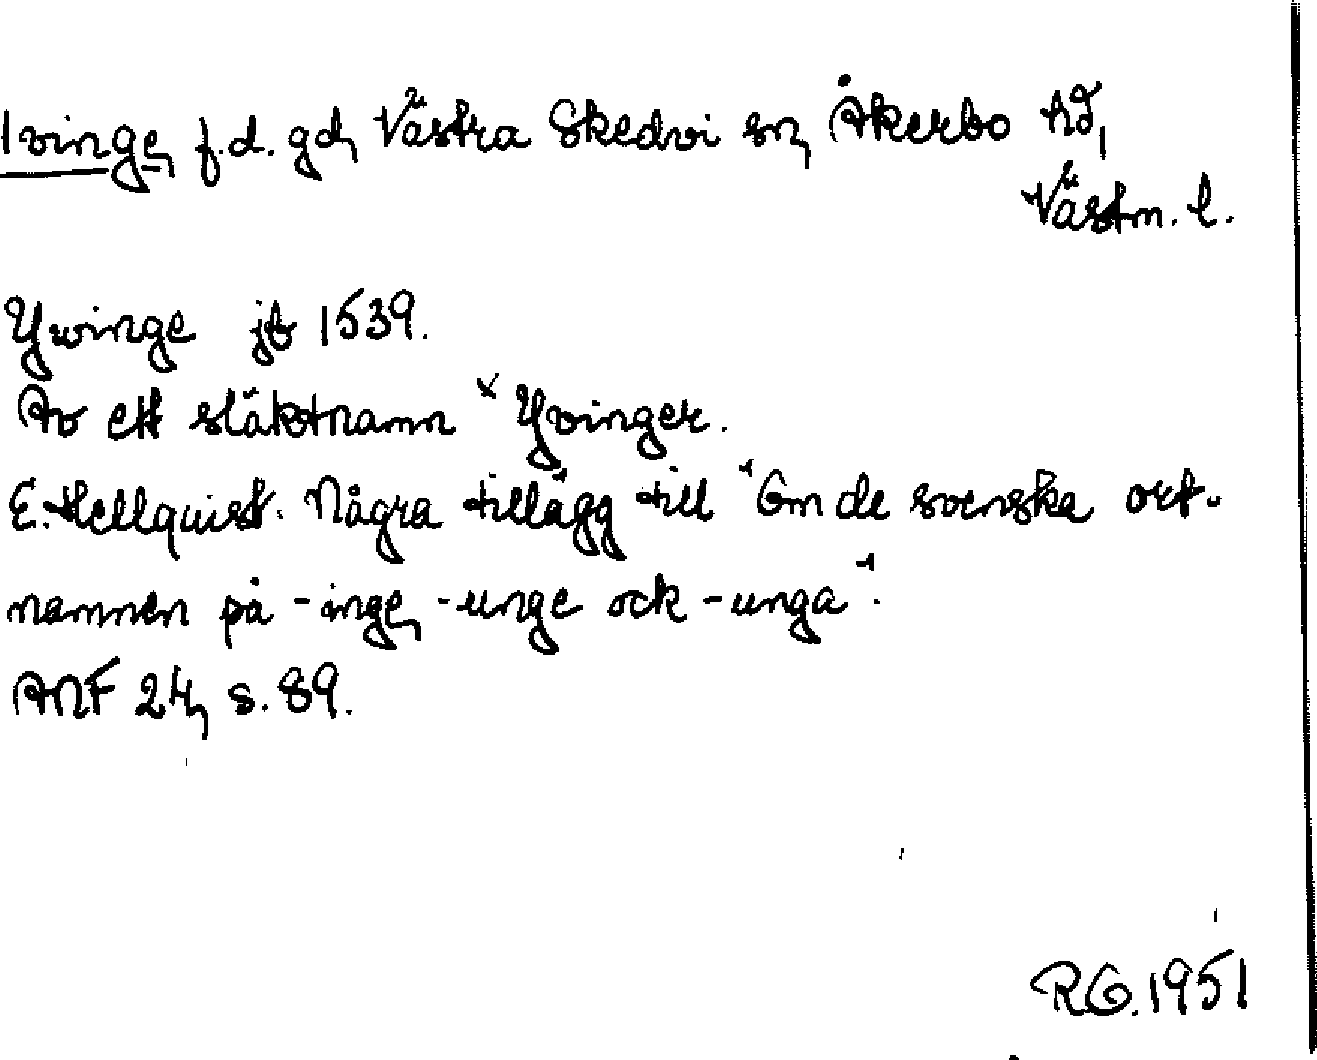 Ivinge, f.d. gd, Västra Skedvi sn, Åkerbo hd,
Västm. l.
Ywinge jb 1539.
Av ett släktnamn *Yvinger.
E. Hellquist. Några tillägg till "Om de svenska ort-
namnen på -inge, -unge ock -unga".
ANF 24, s. 89.
RG. 1951